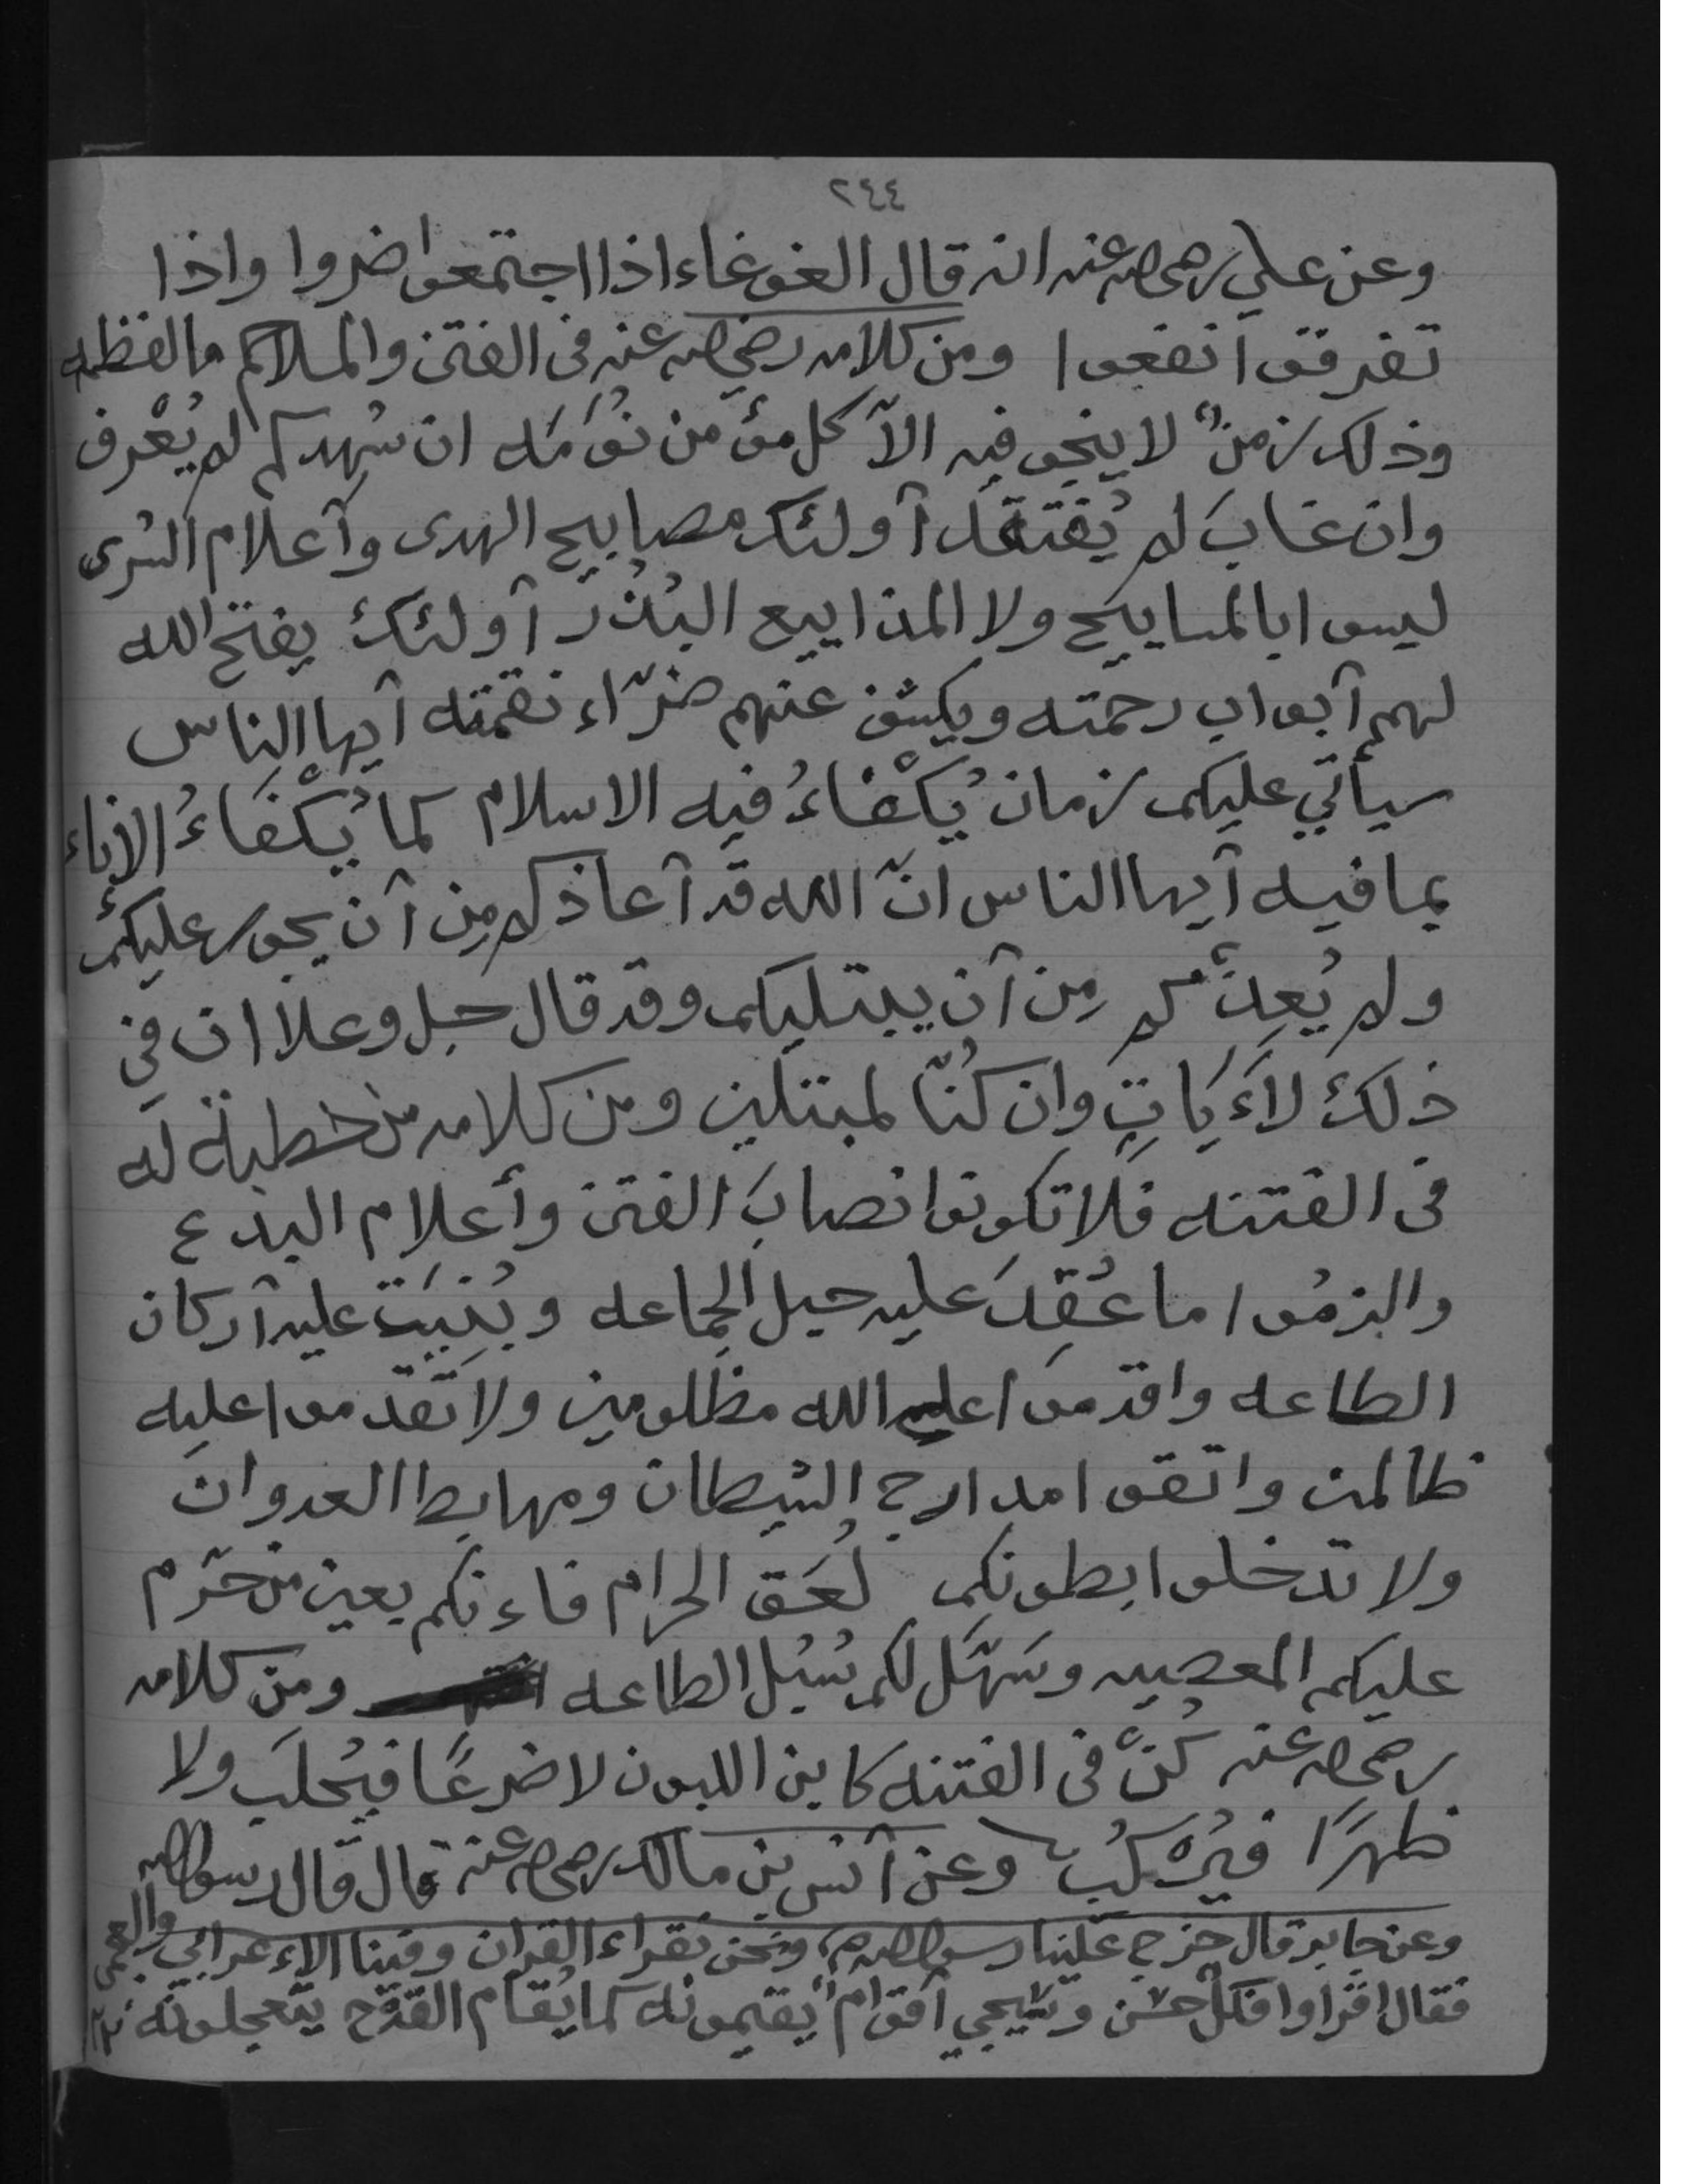 ٢٤٤
وعن علي رضي الله عنه انه قال الغوغاء اذا اجتمعوا ضروا واذا
تفرقوا نفعوا ومن كلامه رضي الله عنه في الفتن والملاحم ما لفظه
وذلك زمنٌ لا ينجو فيه الآ كل مؤمن نُوَمَه ان شهدكم لم يُعْرف
وان غابَ لم يُفتقد آولئك مصابيح الهدى وآعلام السرى
ليسوا بالمساييح ولا المذاييع البُذُر آولئك يفتح الله
لهم آبواب رحمته ويكشف عنهم ضرّاء نقمته آيها الناس
سيأتي عليكم زمان يُكْفاءُ فيه الاسلام كما يُكْفَاءُ الاناء
بما فيه آيها الناس انّ الله قد آعاذكم مِن آن يجور عليكم
ولم يُعِذْكم مِن آن يبتليكم وقد قال جل وعلا ان في
ذلك لاَءَيَاتٍ وان كُنّا لمبتلين ومن كلامه من خطبة له
في الفتنه فلا تكونوا نصابَ الفتن وأعلام البدع
والزمُوا ما عُقِدَ عليه حبل الجماعه وبُنِيَت عليه آركان
الطاعه واقدموا علي الله مظلومين ولا تَقدموا عليه
ظالمين واتقوا مدارج الشيطان ومهابط العدوان
ولا تدخلوا بطونكم لُعَقَ الحرام فاءنكم بعين من حَرّم
عليكم المعصيه وسَهّلَ لكم سُبُل الطاعه ومن كلامه
رضي الله عنه كُنْ في الفتنه كابن اللبون لا ضرعًا فيُحلَب ولا
ظهرًا فيُركَبُ وعن آنس بن مالك رضي الله عنه قال قال رسول الله
وعن جابر قال خرج علينا رسول الله صم ونحن نقراء القران وفينا الاءعرابي والعجمي
فقال اقراوا فكلٌ حسن وسيجي آقوامٌ يُقيمونه كما يُقام القِدْح يتعجلونه